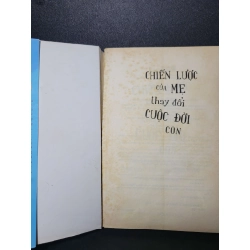 CHIẾN LƯỢC
của MẸ
thay đổi
CUỘC ĐỜI
CON